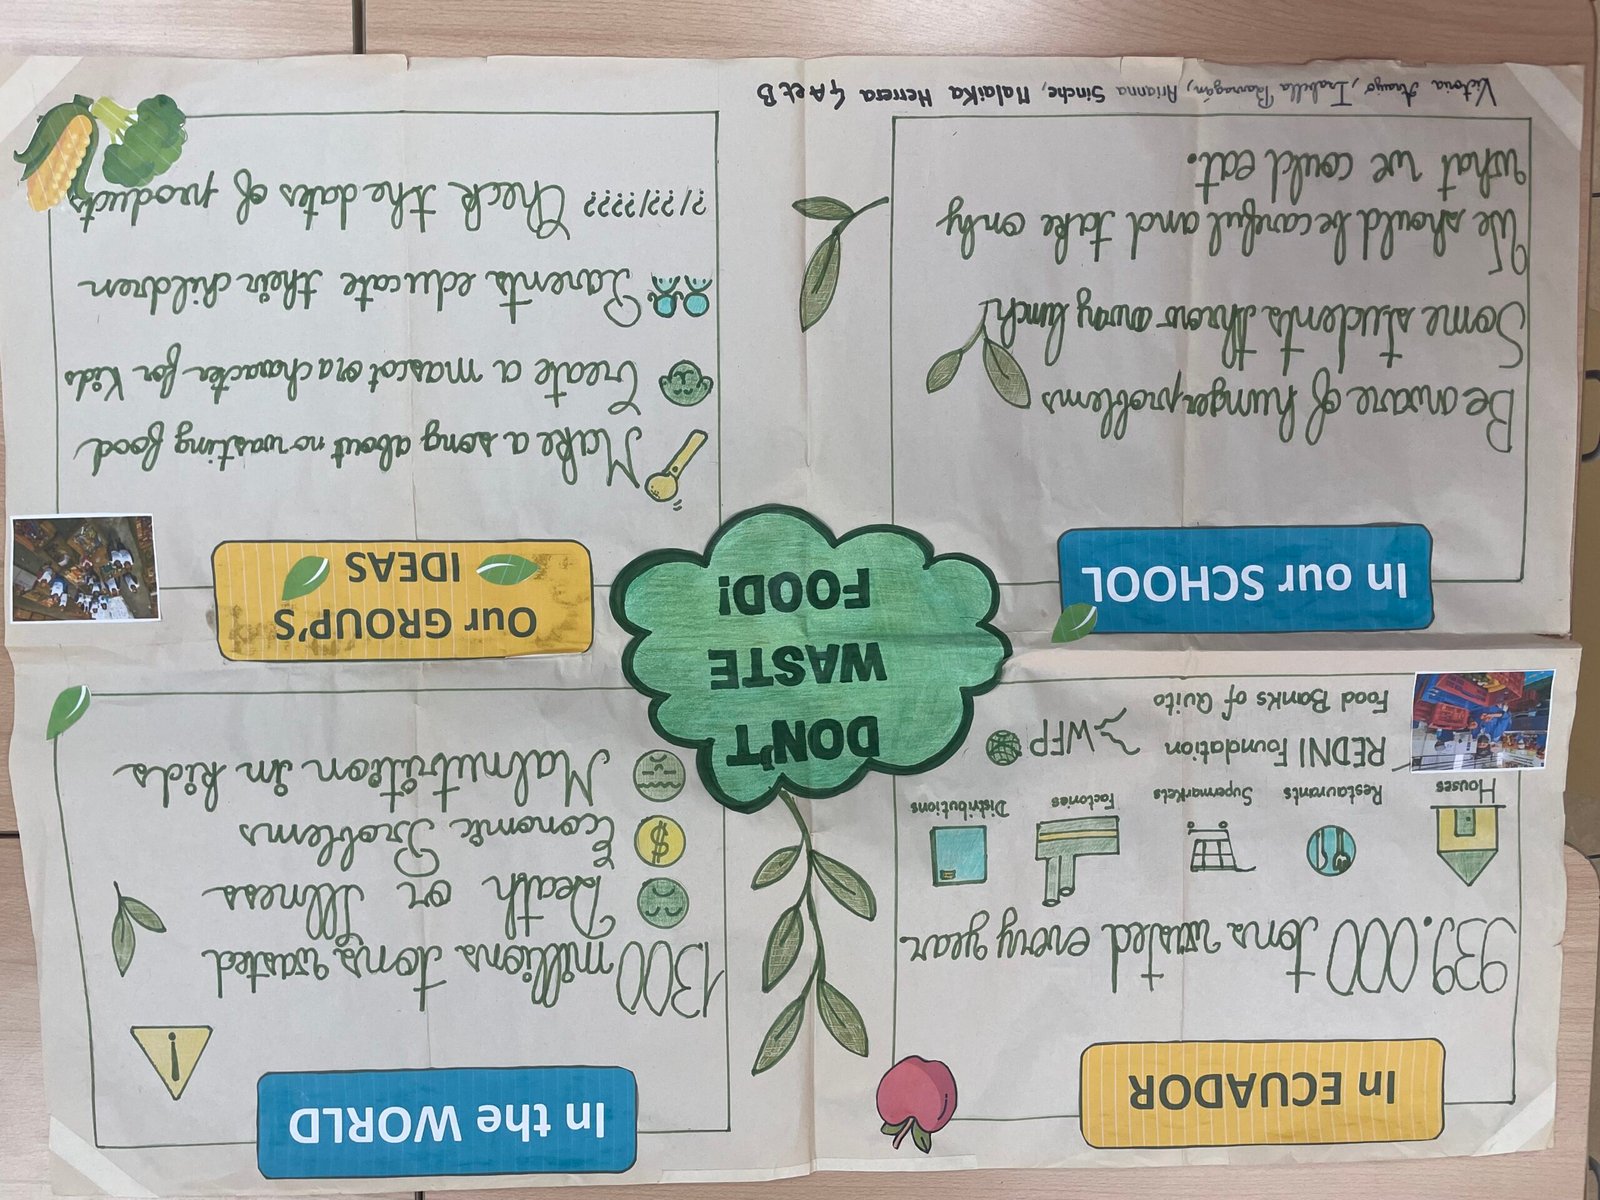 In ECUADOR
939.000 tons wasted every year
Houses
Restaurants
Supermarkets
Factories
Distributions
REDNI Foundation
WFP
Food Banks of Quito
In the WORLD
1300 millions tons wasted
Death or Illness
$
Economic Problems
Malnutrition in kids
DON'T
WASTE
FOOD!
In our SCHOOL
Be aware of hunger problems
Some students throw away lunch!
We should be careful and take only
what we could eat.
Our GROUP'S
IDEAS
Make a song about no wasting food
Create a mascot or a character for kids
Parents educate their children
?/??/???? Check the dates of products
Victoria Arayo, Isabella Barragán, Arianna Sinche, Malaika Herrera 4A et B